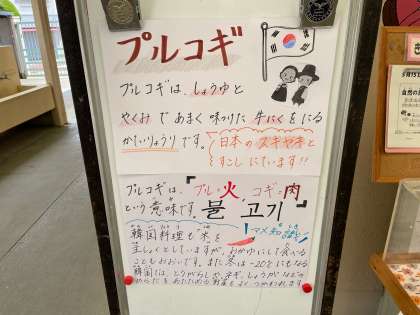 プルコギ
プルコギは、しょうゆと
やくみであまく味つけた牛にくをにる
かていりょうりです。
日本のスキヤキと
すこしにています!!
プルコギは、「プル・火 コギ・肉」
という意味です。 불 고기
マメ知識
韓国料理も米を
主しょくとしていますが、おかゆにして食べる
こともおおいです。また冬は-20℃にもなる
韓国では、とうがらし、ネギ、しょうがなどの
からだをあたためる野菜をよくつかわれます